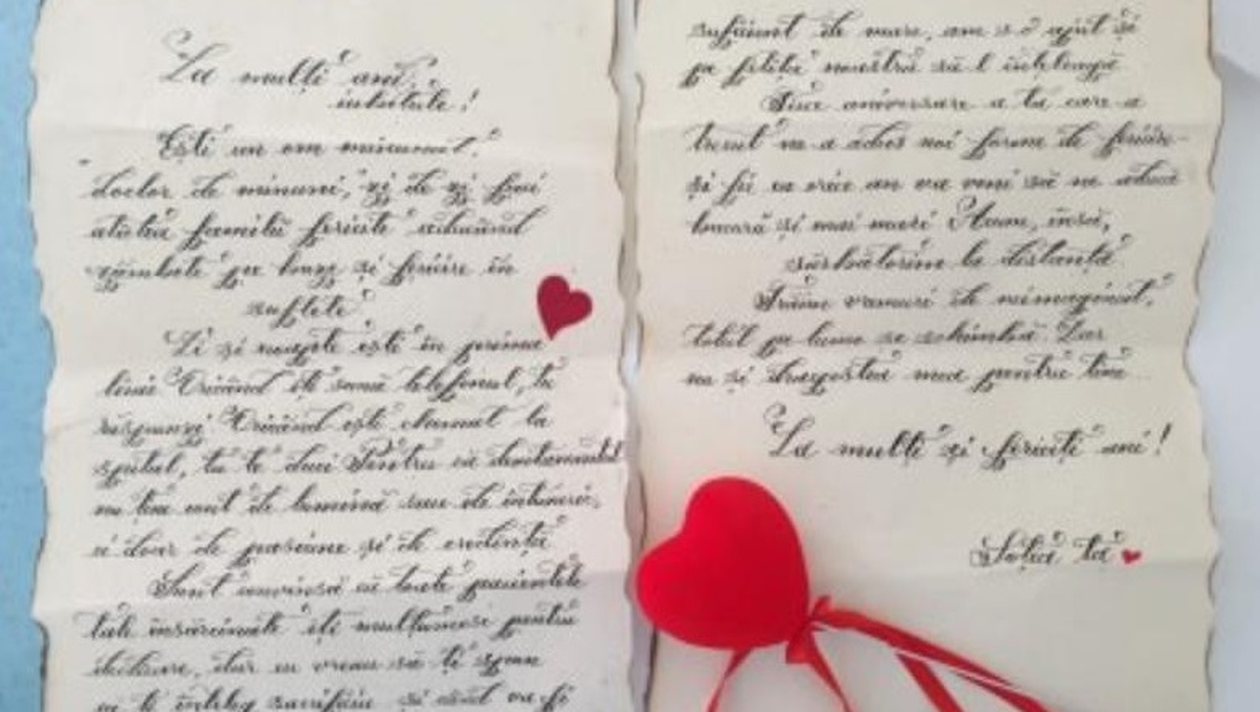 La mulți ani,
iubitule!
Ești un om minunat,
doctor de minuni, zi de zi faci
atâtea familii fericite aducând
zâmbete pe buze și fericire în
suflete
Zi și noapte ești în prima
linie Oricând îți sună telefonul, tu
răspunzi Oricând ești chemat la
spital, tu te duci Pentru că devotamentul
nu ține cont de lumină sau de întuneric,
ci doar de pasiune și de credință
Sunt convinsă că toate pacientele
tale însărcinate îți mulțumesc pentru
dedicare, dar eu vreau să îți spun
că te înțeleg sacrificiu și când va fi
suficient de mare, am s-o ajut și
pe fetița noastră să îl înțeleagă
Fiece aniversare a ta care a
trecut ne-a adus noi forme de fericire
și fie ca orice an va veni să ne aducă
bucurii și mai mari Acum, însă,
sărbătorim la distanță
Trăim vremuri de neimaginat,
totul pe lume se schimbă Dar
nu și dragostea mea pentru tine
La mulți și fericiți ani!
Soția ta